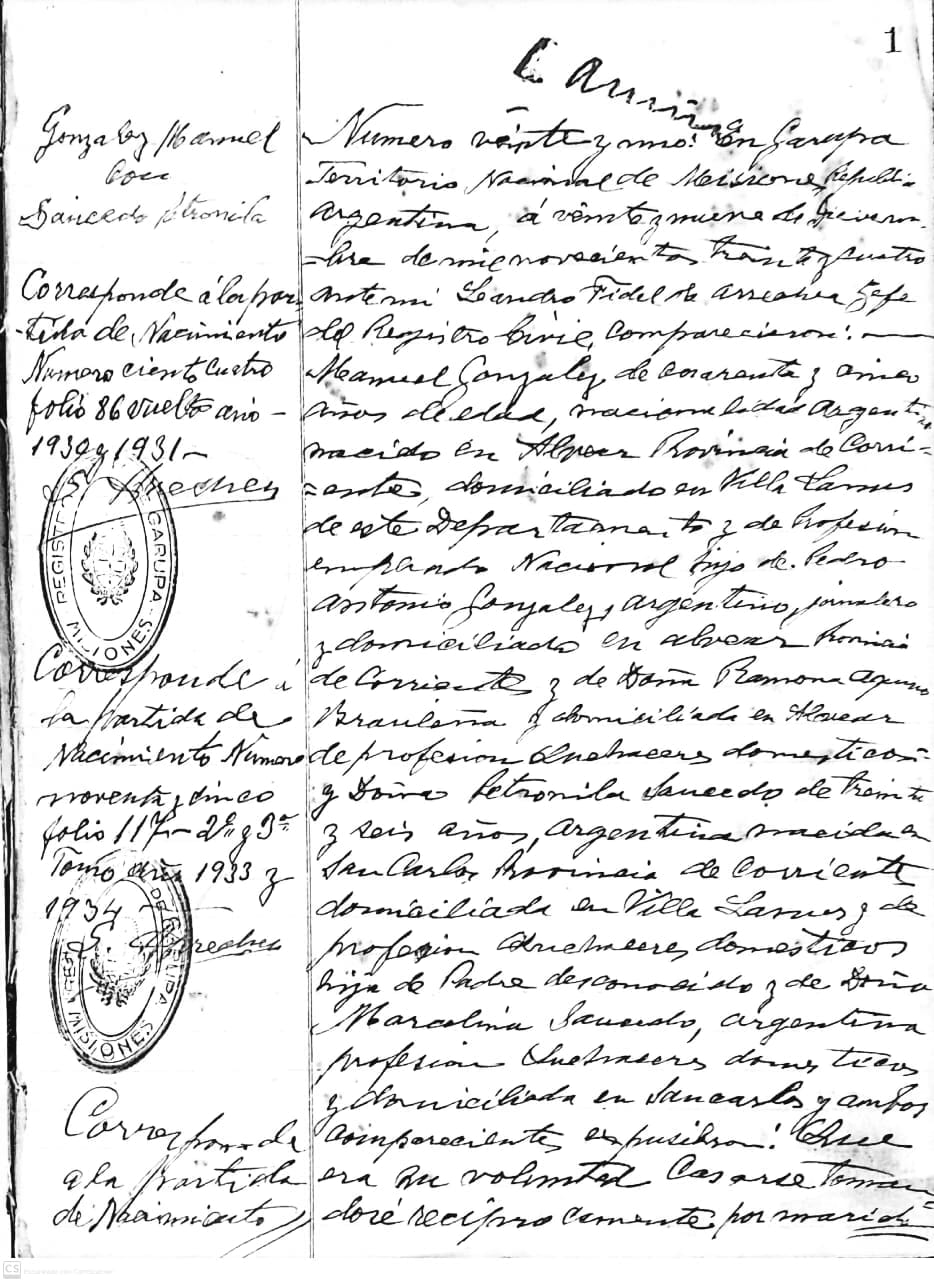 1
Gonzalez Manuel
con
Saucedo Petronila
Corresponde á la par-
-tida de Nacimiento
Numero ciento cuatro
folio 86 vuelto año -
1930 y 1931-
Arrechea
REGISTRO GARUPA
MISIONES
Corresponde á
la partida de
Nacimiento Número
noventa y cinco
folio 117- 2º y 3º
Tomo año 1933 y
1934
Arrechea
DE GARUPA
MISIONES
Corresponde
a la partida
de Nacimiento
Numero veinte y uno: En Garupa
Territorio Nacional de Misiones, Republica
Argentina, á veinte y nueve de Diciem-
-bre de mil novecientos treinta y cuatro
ante mi Leandro Fidel de Arrechea Gefe
del Registro Civil, comparecieron: —
Manuel Gonzalez, de cuarenta y cinco
años de edad, nacionalidad Argentina
nacido en Alvear Provincia de Corri-
-entes, domiciliado en Villa Lanus
de este Departamento y de Profesion
empleado Nacional hijo de Pedro
Antonio Gonzalez, argentino, jornalero
y domiciliado en Alvear Provincia
de Corrientes y de Doña Ramona
Brasileña y domiciliada en Alvear
de profesion Quehaceres domesticos-
y Doña Petronila Saucedo, de treinta
y seis años, Argentina nacida en
San Carlos Provincia de Corrientes
domiciliada en Villa Lanus y de
profesion Quehaceres domesticos
hija de Padre desconocido y de Doña
Marcelina Saucedo, argentina
profesion Quehaceres domesticos
y domiciliada en San Carlos y ambos
comparecientes expusieron: Que
era su voluntad Casarse toman-
dose reciprocamente por marido
CS